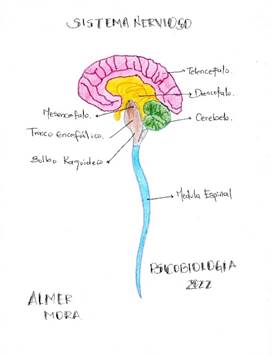 SISTEMA NERVIOSO
Telencefalo.
Diencefalo.
Mesencefalo.
Cerebelo.
Tronco encefálico.
Bulbo Raquideo
Medula Espinal
PSICOBIOLOGIA
2022
ALMER
MORA